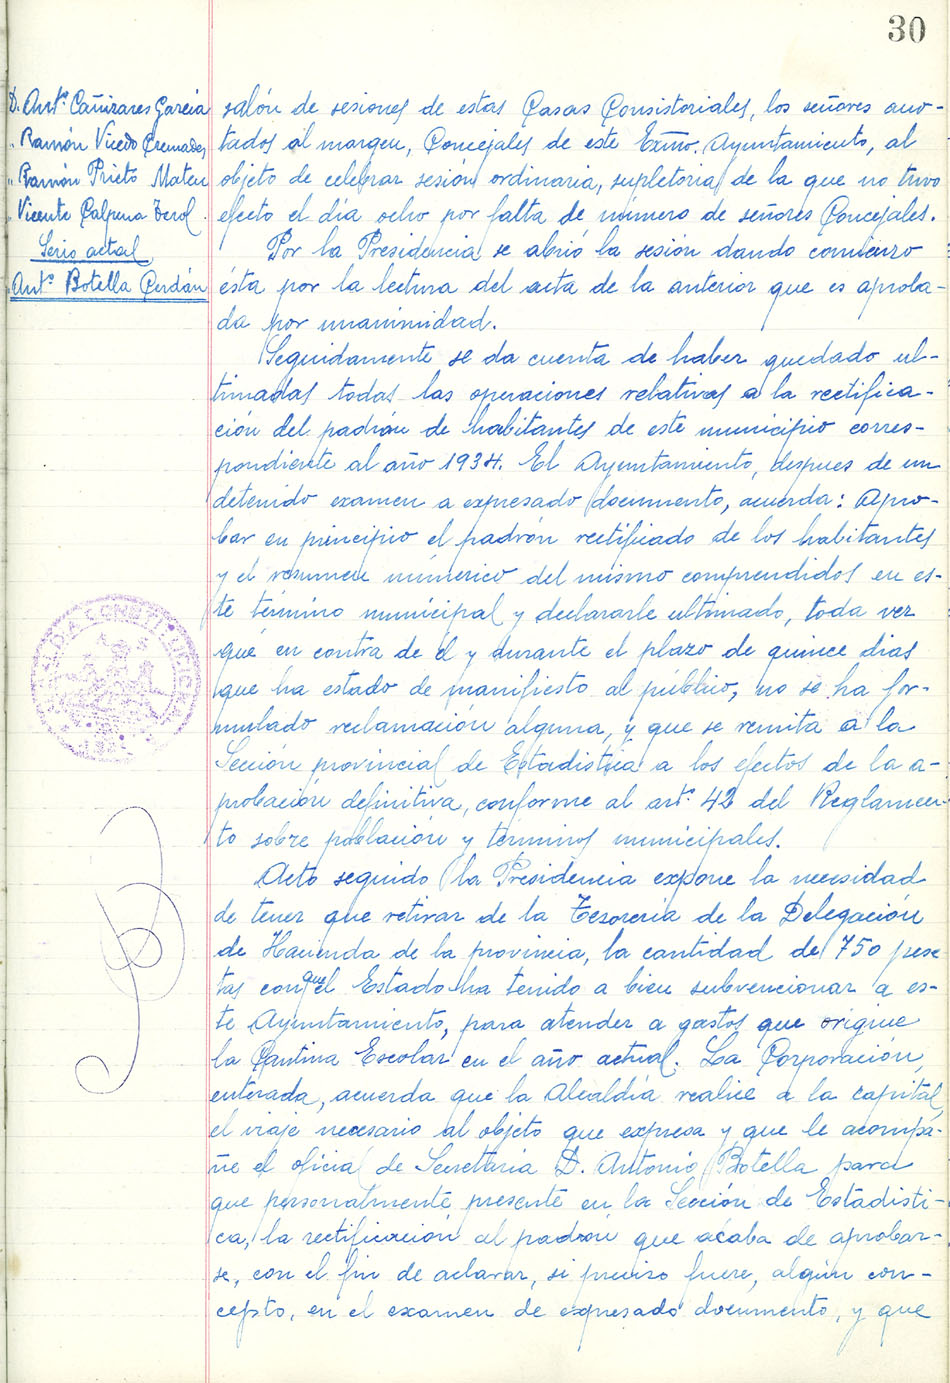 30
D. Antº Cañizares García
" Ramón Vicedo Cremades
" Ramón Prieto Mateu
" Vicente Calpena Terol
Serio actal
" Antº Botella Cerdán
salón de sesiones de estas Casas Consistoriales, los señores ano-
tados al margen, Concejales de este Exmo. Ayuntamiento, al
objeto de celebrar sesión ordinaria, supletoria de la que no tuvo
efecto el día ocho por falta de número de señores Concejales.
Por la Presidencia se abrió la sesión dando comienzo
ésta por la lectura del acta de la anterior que es aproba-
da por unanimidad.
Seguidamente se da cuenta de haber quedado ul-
timadas todas las operaciones relativas a la rectifica-
ción del padrón de habitantes de este municipio corres-
pondiente al año 1934. El Ayuntamiento, despues de un
detenido examen a expresado documento, acuerda: Apro-
bar en principio el padrón rectificado de los habitantes
y el resumen númerico del mismo comprendidos en es-
te término municipal y declararle ultimado, toda vez
que en contra de él y durante el plazo de quince dias
que ha estado de manifiesto al público, no se ha for-
mulado reclamación alguna, y que se remita a la
Sección provincial de Estadística a los efectos de la a-
probación definitiva, conforme al artº 42 del Reglamen-
to sobre población y términos municipales.
Acto seguido la Presidencia expone la necesidad
de tener que retirar de la Tesoreria de la Delegación
de Hacienda de la provincia, la cantidad de 750 pese-
tas con que el Estado ha tenido a bien subvencionar a es-
te Ayuntamiento, para atender a gastos que origine
la Cantina Escolar en el año actual. La Corporación,
enterada, acuerda que la Alcaldía realice a la capital,
el viaje necesario al objeto que expresa y que le acompa-
ñe el oficial de Secretaria D. Antonio Botella para
que personalmente presente en la Sección de Estadisti-
ca, la rectificación al padrón que acaba de aprobar-
se, con el fin de aclarar, si preciso fuere, algún con-
cepto, en el examen de expresado documento, y que